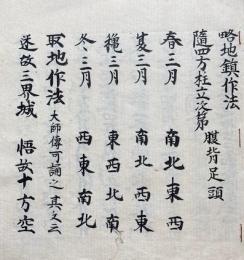 略地鎮作法
隨四方柱立次第 腹背足頭
春三月 南北東西
夏三月 南北西東
穐三月 東西北南
冬三月 西東南北
取地作法 大師傳可誦之其文云
迷故三界城 悟故十方空